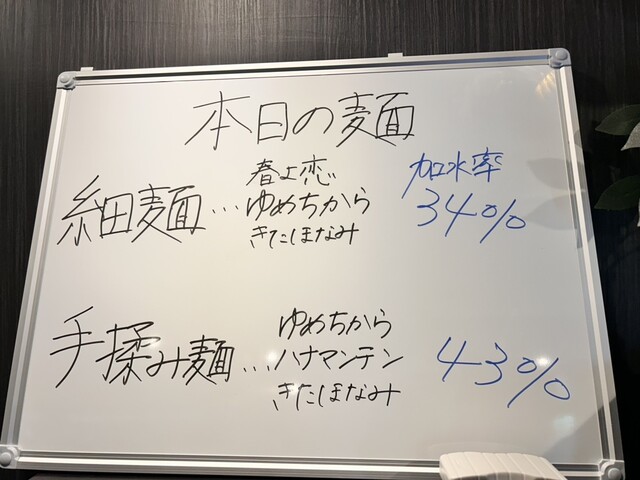 本日の麺
加水率
細麺…春よ恋
ゆめちから
きたほなみ
34%
手揉み麺…ゆめちから
ハナマンテン
きたほなみ
43%